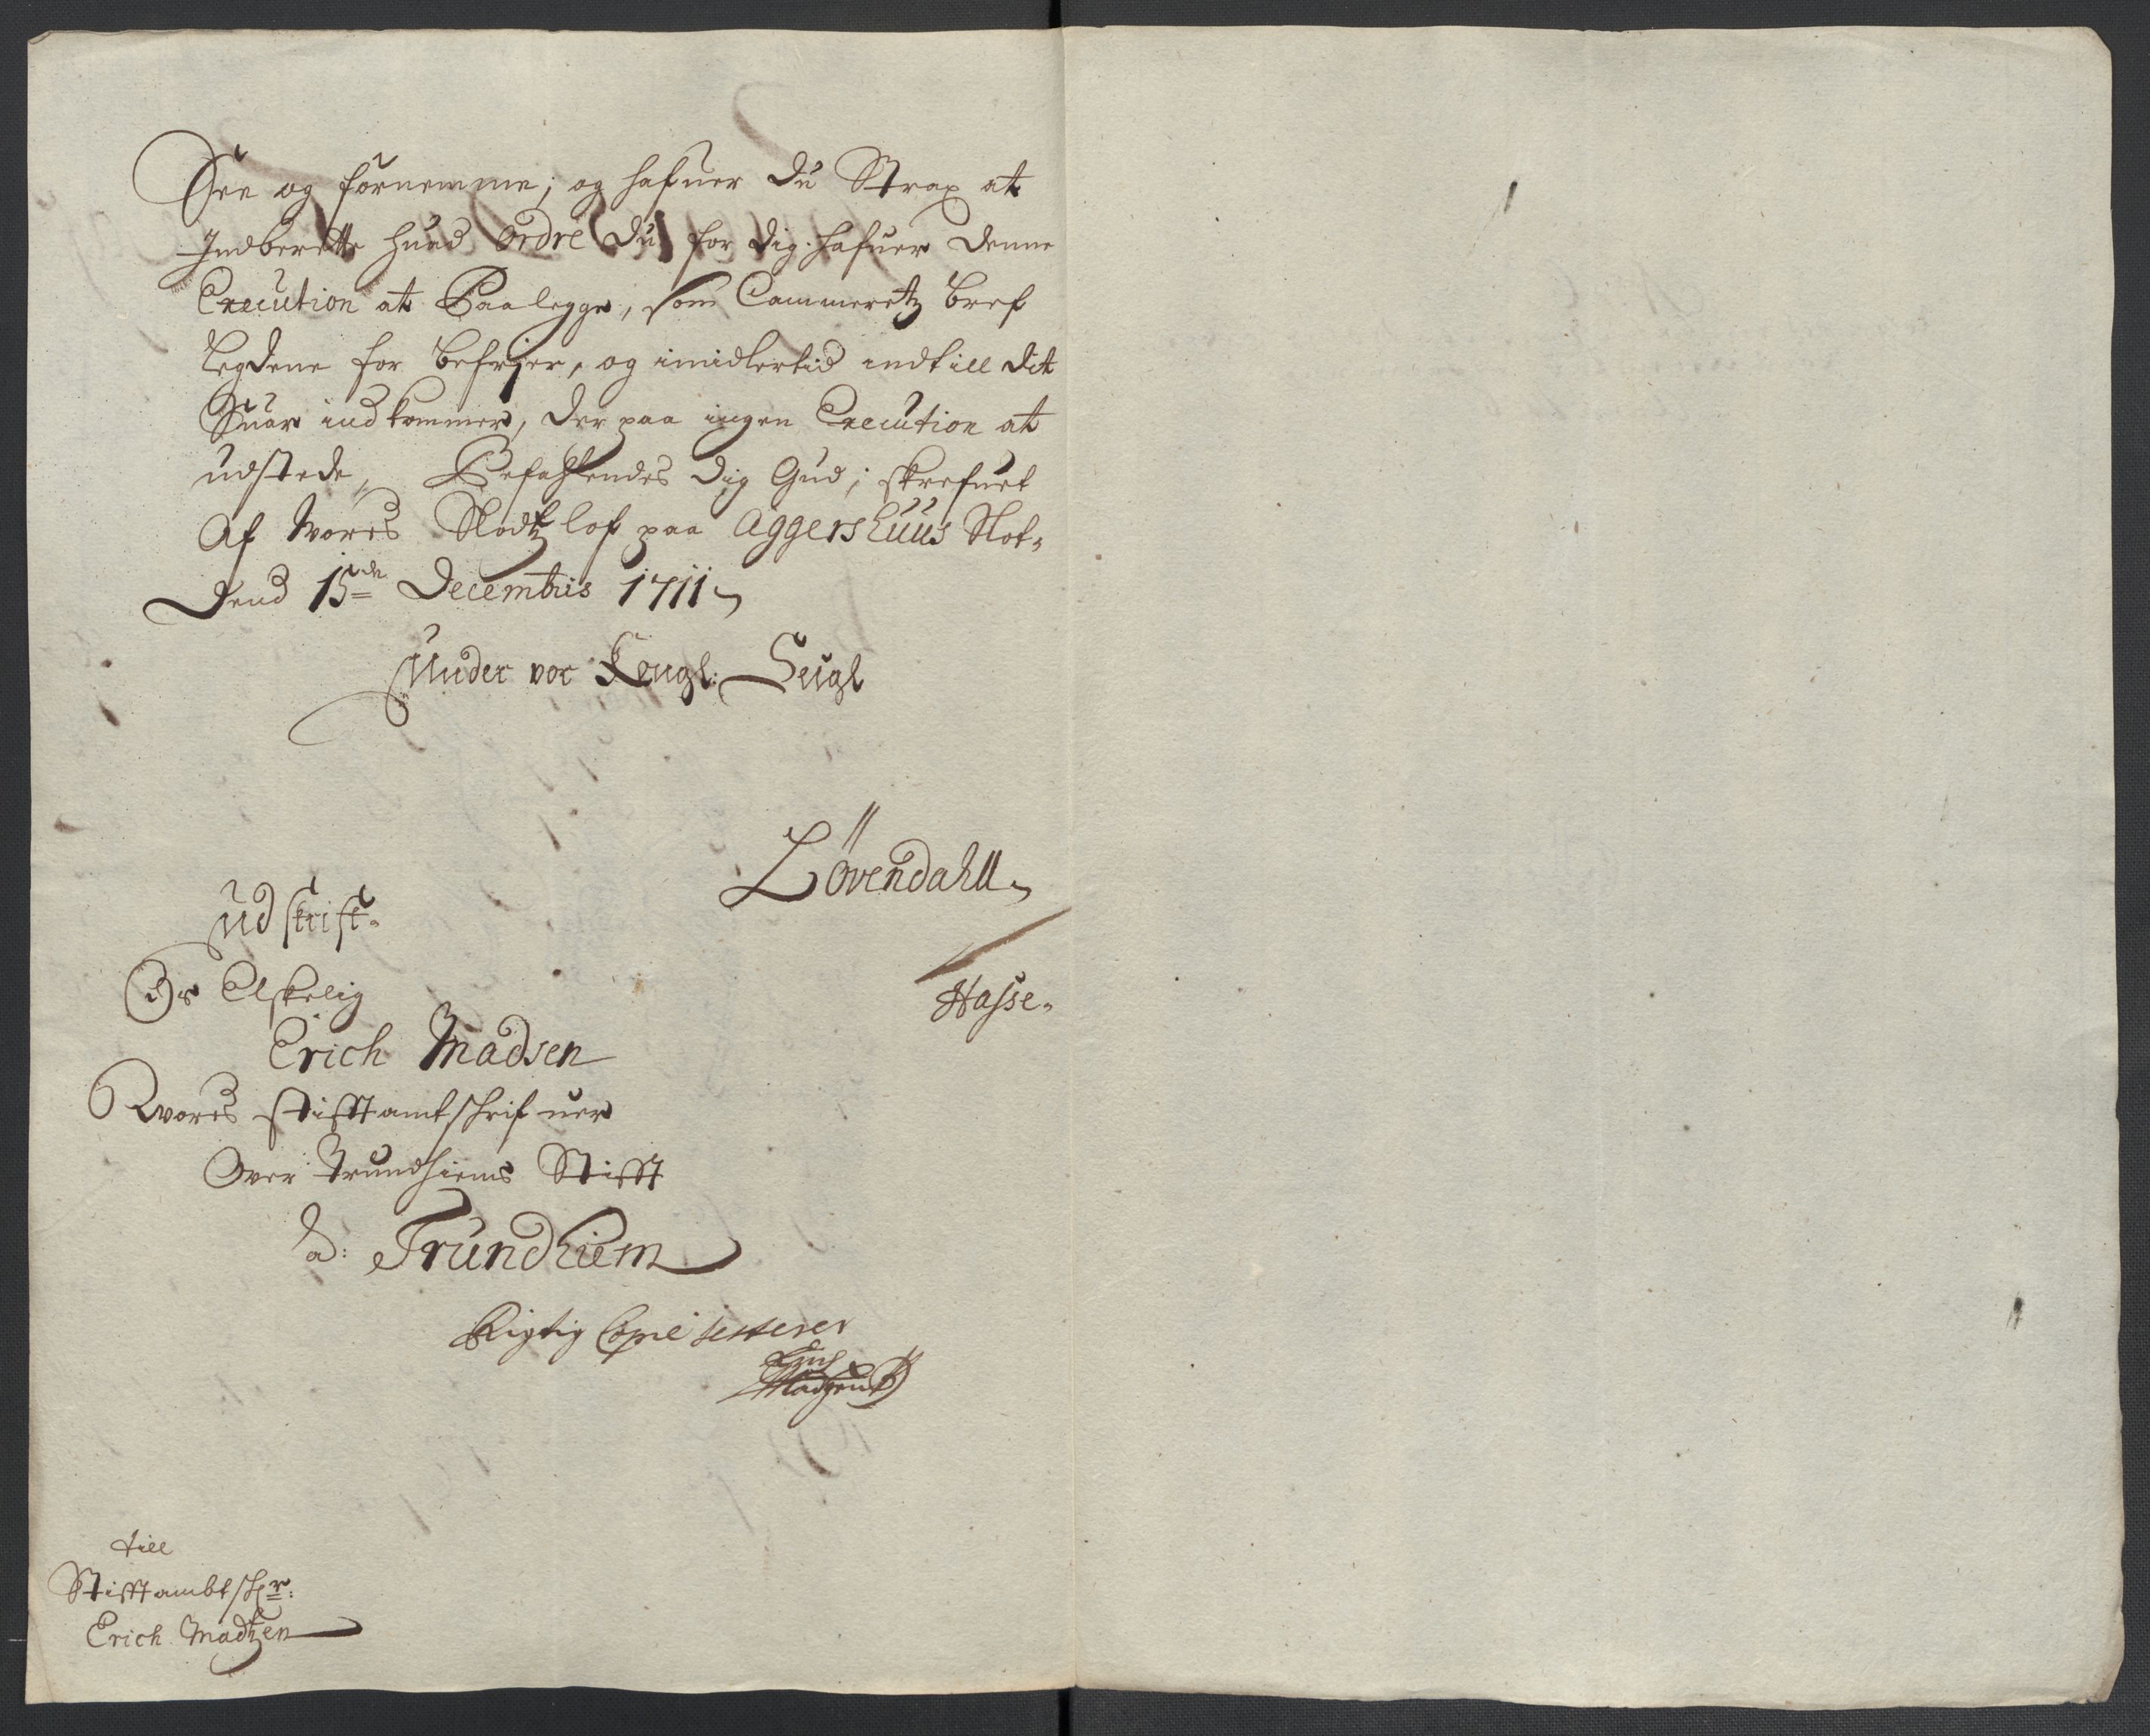 See og fornemme; og hafuer du Strax at
Indberette huad Ordre du for dig hafuer denne
Execution at Paalegge, som Cammeretz bref
legdene for befrjer, og imidlertid indtill dit
Suar indkommer, der paa ingen Execution at
udstede, Befahlendes dig Gud; skrefuet
Af Wores Slodtz lof paa Aggershuus Slot,
Dend 15de Decembris 1711
Under vor Kongl: Seigl
Lövendahll
Udskrift
Os Elskelig
Hasse
Erich Madsen
Wores Stifftamtschrifuer
Over Trundhiems Stifft
a: Trundhiem
Rigtig Copie testerer
Erich
Madtzen
till
Stifftambtschr:
Erich Madtzen